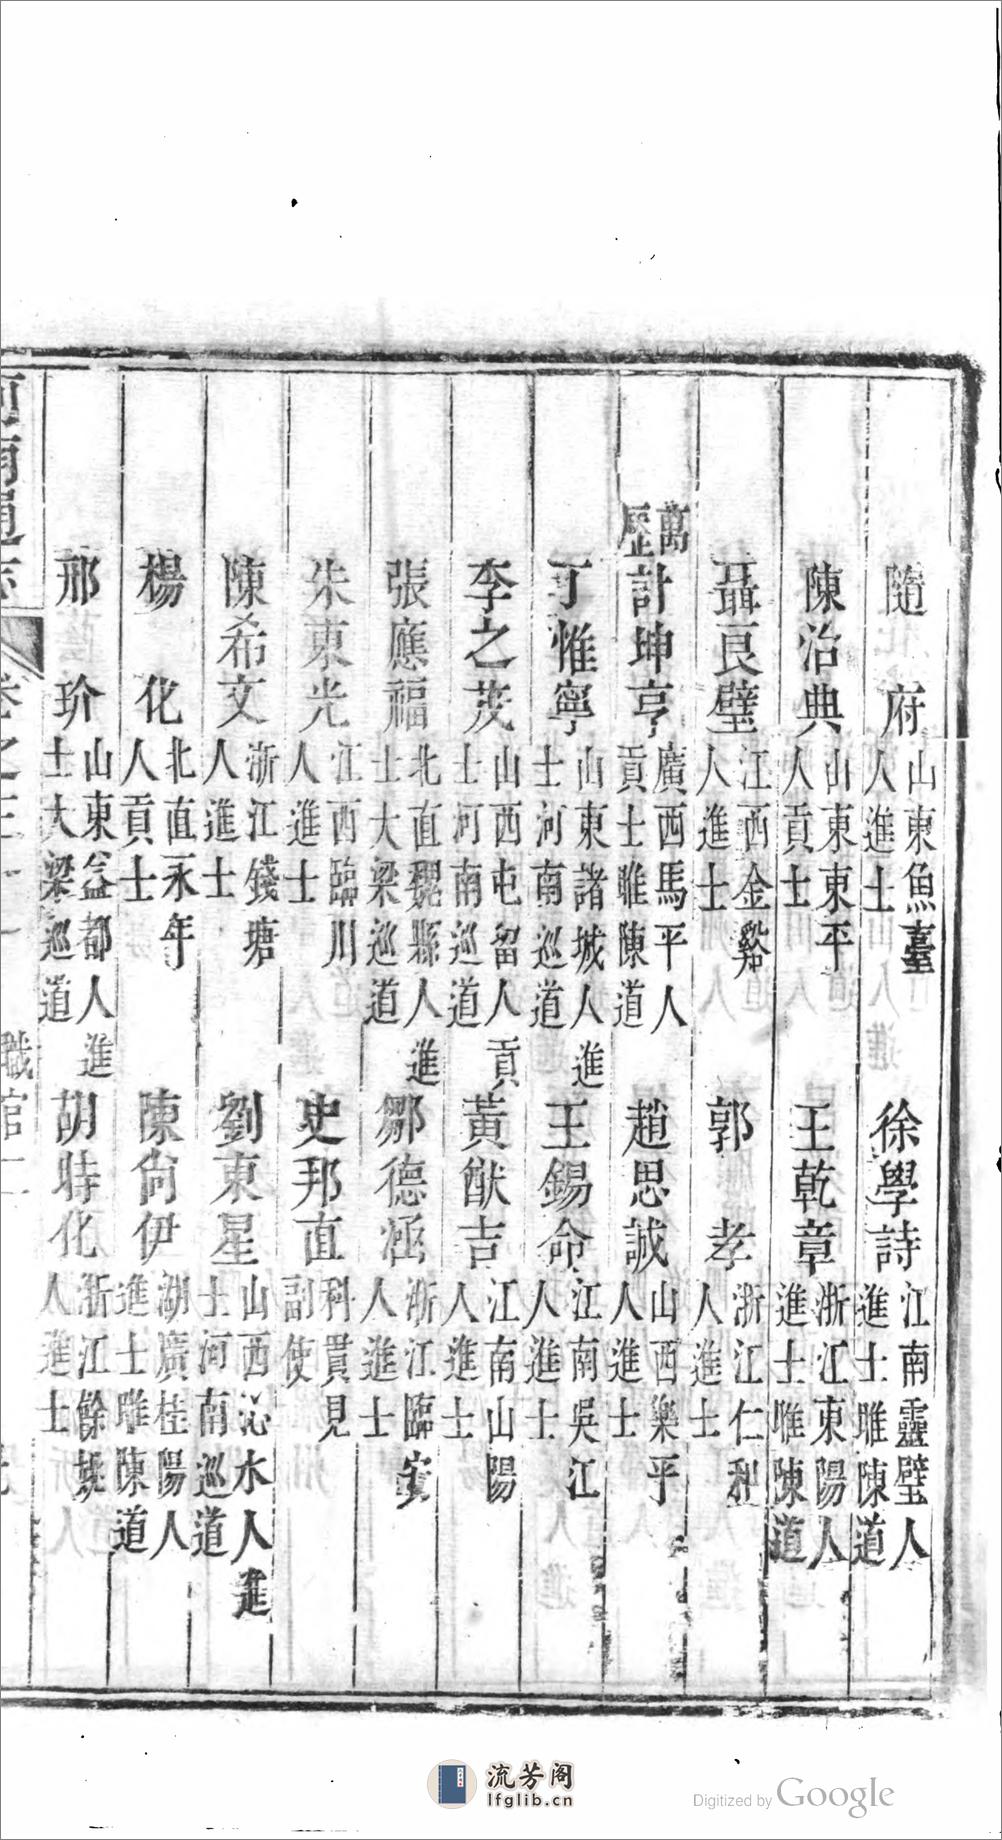 隨府 山東魚臺人進士 徐學詩 江南靈璧人進士睢陳道
陳治典 山東東平人貢士 王乾章 浙江東陽人進士睢陳道
聶良璧 江西金谿人進士 郭孝 浙江仁和人進士
萬歷 計坤亨 廣西馬平人貢士睢陳道 趙思誠 山西樂平人進士
丁惟寧 山東諸城人進士河南巡道 王錫命 江南吳江人進士
李之茂 山西屯留人貢士河南巡道 黃猷吉 江南山陽人進士
張應福 北直魏縣人進士大梁巡道 鄒德涵 浙江臨安人進士
朱東光 江西臨川人進士 史邦直 科貫見副使
陳希文 浙江錢塘人進士 劉東星 山西沁水人進士河南巡道
楊化 北直永年人貢士 陳尚伊 湖廣桂陽人進士睢陳道
邢玠 山東益都人進士大梁巡道 胡時化 浙江餘姚人進士
河南通志 卷之三十一 職官二
流芳阁
lfglib.cn
Digitized by Google